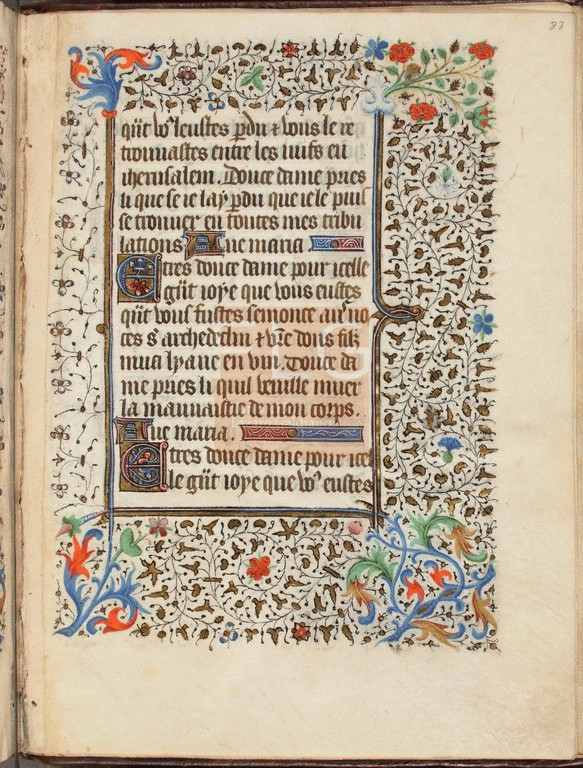 37
q̄ut vo⁹ leustes p̄du ⁊ vous le re
trouuastes entre les iuifs en
iherusalem. Douce dame pries
li que se ie lay p̄du que ie le puis
se trouuer en toutes mes tribu
lations Aue maria
E tres douce dame pour icelle
gr̄ıt ioye que vous eustes
q̄ut vous fustes semonce aus no
ces s̄ archedeclin ⁊ vr̄e dous filz
mua lyaue en vin. Douce da
me pries li quil veuille muer
la mauuaistie de mon corps.
Aue maria.
E tres douce dame pour icel
le gr̄ıt ioye que vo⁹ eustes